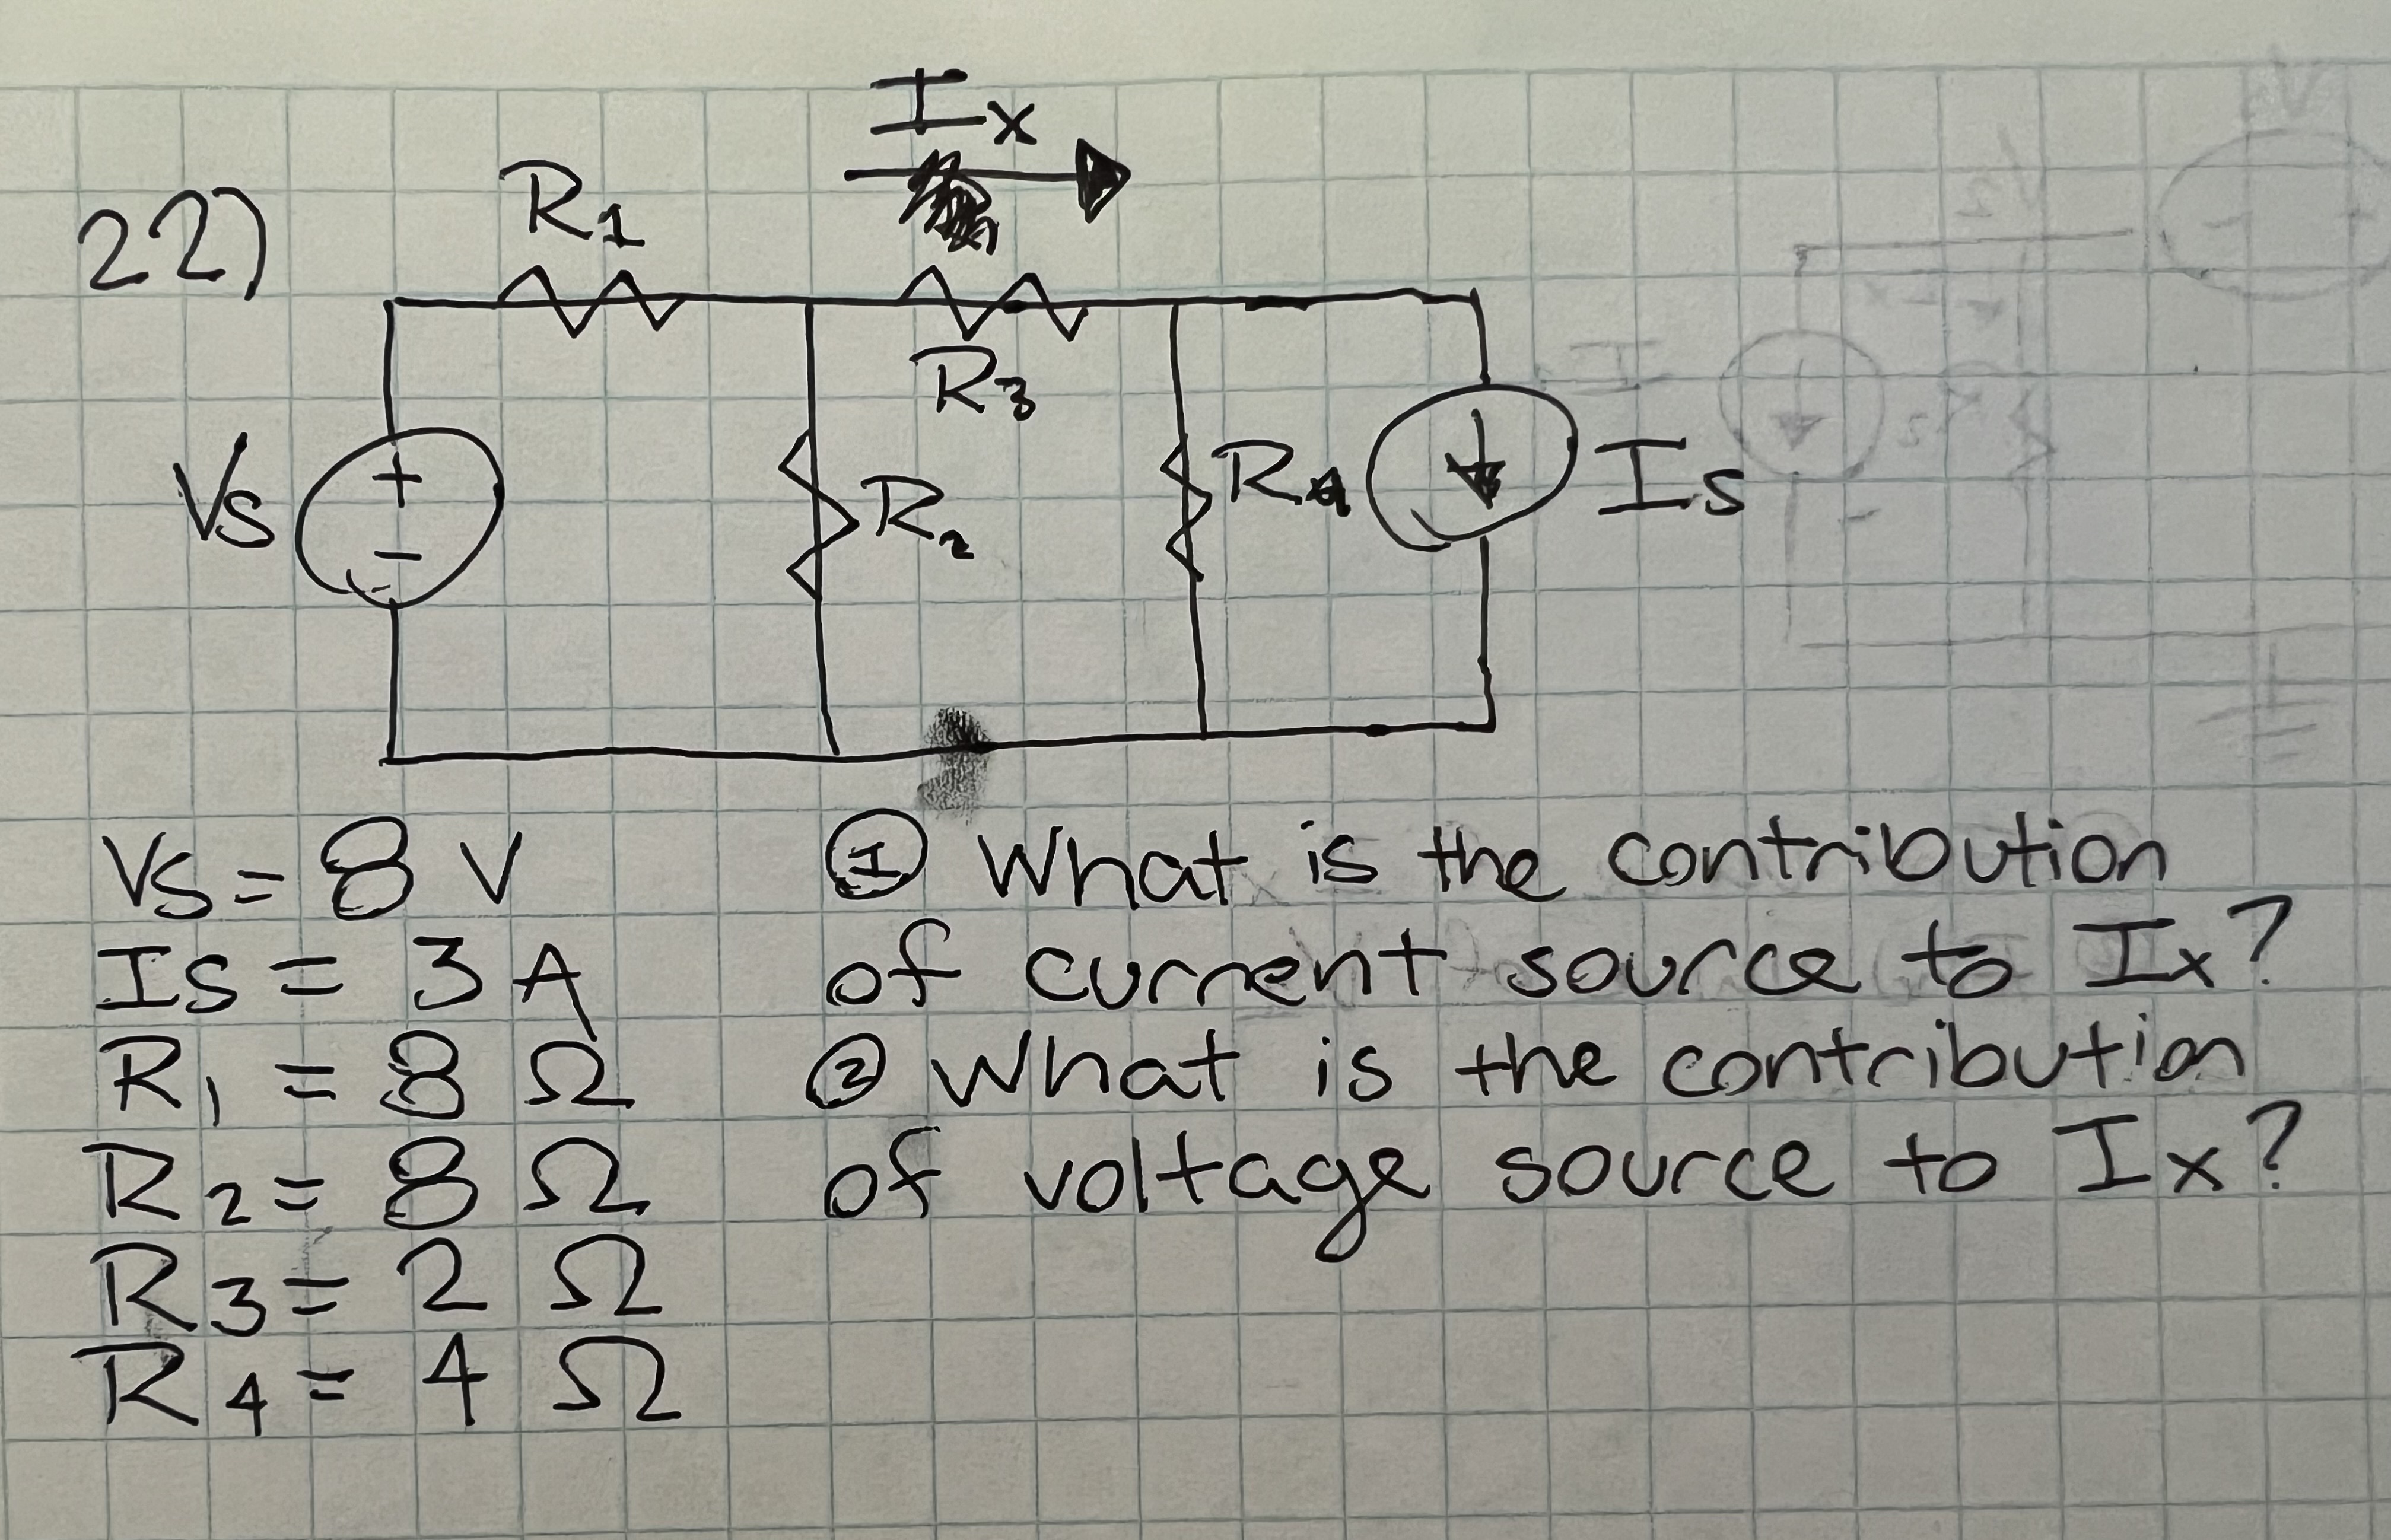 22)
Ix
R1
R3
Vs
+
-
R2
R4
Is
Vs = 8 V
Is = 3 A
R1 = 8 Ω
R2 = 8 Ω
R3 = 2 Ω
R4 = 4 Ω
① What is the contribution
of current source to Ix?
② What is the contribution
of voltage source to Ix?